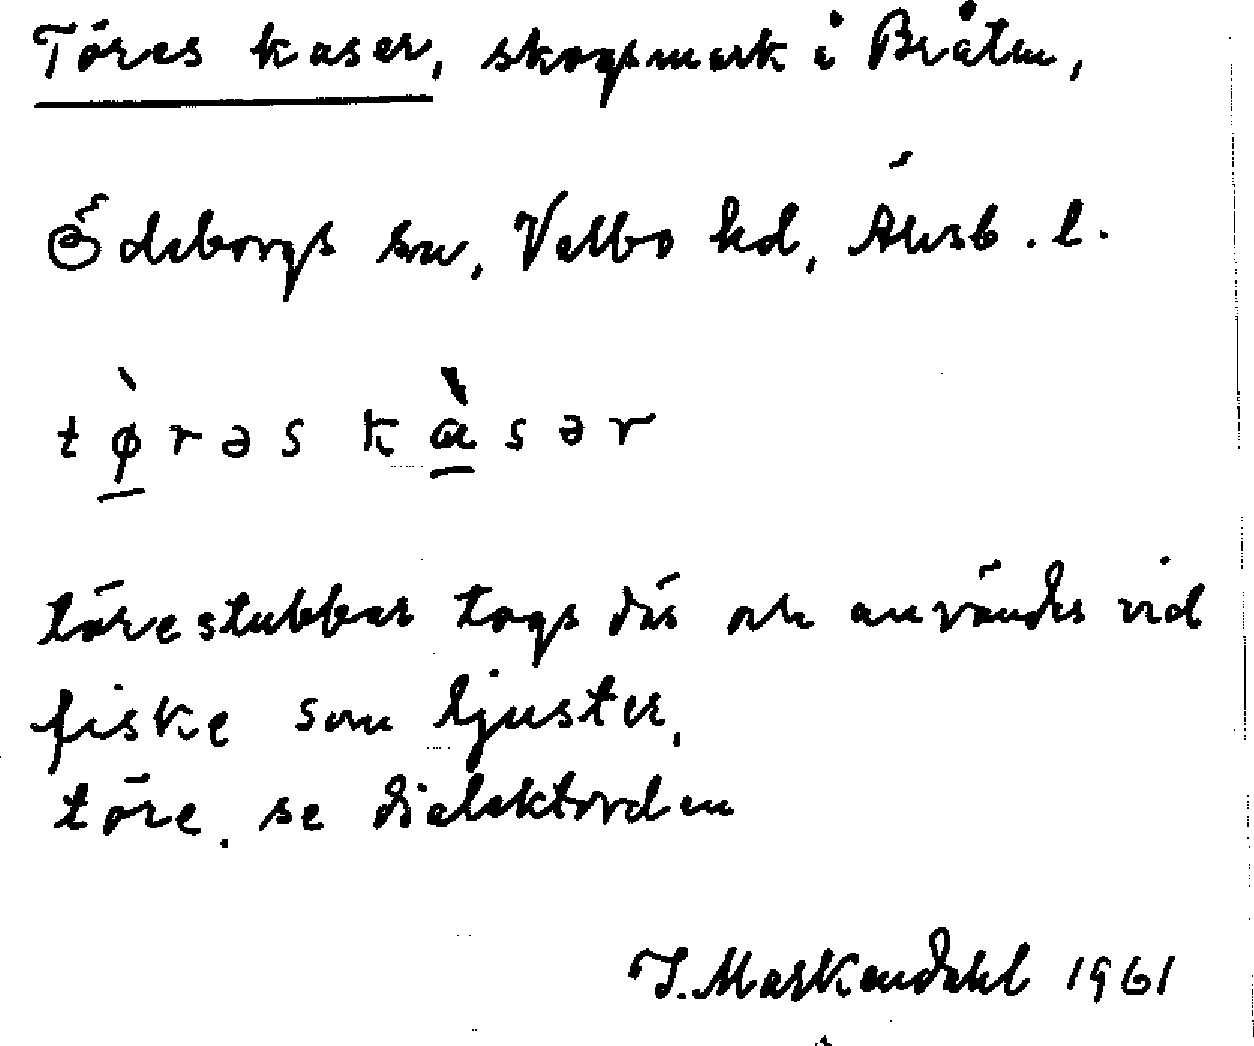 Töres kaser, skogsmark i Bråten,
Ödeborgs sn, Valbo hd, Älvsb. l.
tø̀rəs kɑ̀sər
törestubbar togs där och användes vid
fiske som ljuster,
töre. se dialektorden
I. Markendahl 1961